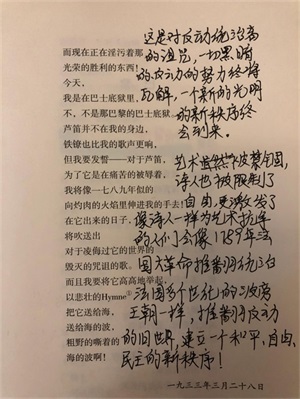 这是对反动统治者
而现在正在淫污着那 的诅咒,一切黑暗
光荣的胜利的东西! 的反动的势力终将
今天, 瓦解,一个新的光明
我是在巴士底狱里, 的新秩序终
不,不是那巴黎的巴士底狱! 会到来。
芦笛并不在我的身边,
铁镣也比我的歌声更响,
但我要发誓——对于芦笛, 艺术虽然被禁锢,
为了它是在痛苦的被辱着, 诗人也被限制了
我将像一七八九年似的 自由,更激发了
向灼肉的火焰里伸进我的手去! 像诗人一样为艺术抗争
在它出来的日子, 的人们会像1789年法
将吹送出 国大革命推翻
对于凌侮过它的世界的
毁灭的咒诅的歌。
而且我要将它高高地举起, 法国
以悲壮的Hymne 的波旁
把它送给海, 王朝一样,推翻反动
送给海的波, 的旧世界,建立一个和平、自由、
粗野的嘶着的 民主的新秩序!
海的波啊!
一九三三年三月二十八日